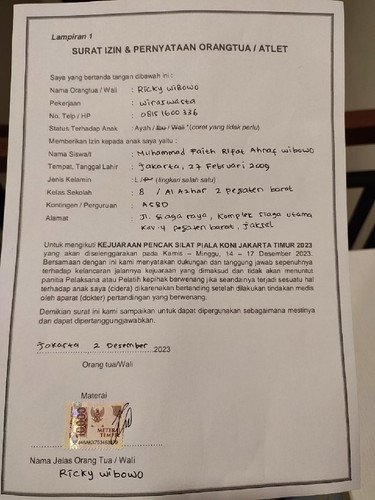 Lampiran 1
SURAT IZIN & PERNYATAAN ORANGTUA / ATLET
Saya yang bertanda tangan dibawah ini :
Nama Orangtua / Wali : Ricky WiBowo
Pekerjaan : wiraswasta
No. Telp / HP : 08151600336
Status Terhadap Anak : Ayah / Ibu / Wali *(coret yang tidak perlu)
Memberikan Izin kepada anak saya yaitu :
Nama Siswa/i : Muhammad Faith Rifat Ahraf wibowo
Tempat, Tanggal Lahir : Jakarta, 27 Februari 2009
Jenis Kelamin : L / P (lingkari salah satu)
Kelas Sekolah : 8 / Al Azhar 2 pejaten barat
Kontingen / Perguruan : ACBD
Alamat : Jl. Siaga raya, Komplek Siaga utama
Kav-4 pejaten barat, jaksel
Untuk mengikuti KEJUARAAN PENCAK SILAT PIALA KONI JAKARTA TIMUR 2023
yang akan diselenggarakan pada Kamis – Minggu, 14 – 17 Desember 2023.
Bersamaan dengan ini kami menyatakan dukungan dan tanggung jawab sepenuhnya
terhadap kelancaran jalannya kejuaraan yang dimaksud dan tidak akan menuntut
panitia Pelaksana atau Pelatih kepihak berwenang jika seandainya terjadi sesuatu hal
terhadap anak saya (cidera) dikarenakan bertanding setelah dilakukan tindakan medis
oleh aparat (dokter) pertandingan yang berwenang.
Demikian surat ini kami sampaikan untuk dapat dipergunakan sebagaimana mestinya
dan dapat dipertanggungjawabkan.
Jakarta 2 Desember 2023
Orang tua/Wali
Materai
10000
METERAI
TEMPEL
Nama Jelas Orang Tua / Wali
Ricky wibowo